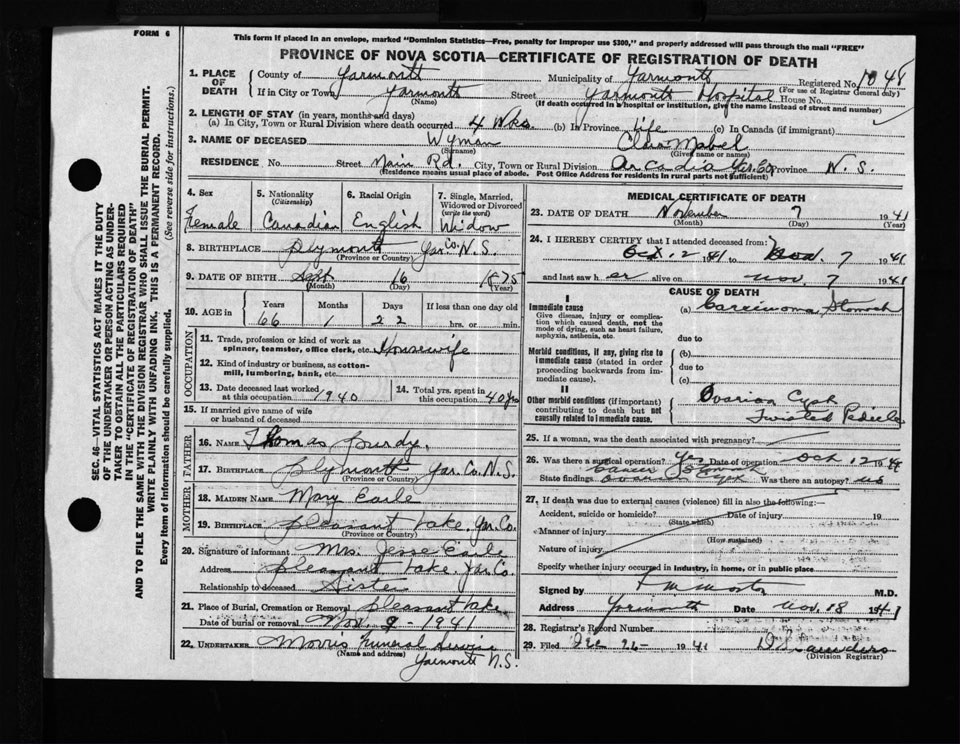 FORM 6
This form if placed in an envelope, marked "Dominion Statistics—Free, penalty for improper use $300," and properly addressed will pass through the mail "FREE"
PROVINCE OF NOVA SCOTIA—CERTIFICATE OF REGISTRATION OF DEATH
1. PLACE OF DEATH
County of Yarmouth Municipality of Yarmouth Registered No.
(For use of Registrar General only)
If in City or Town Yarmouth Street Yarmouth Hospital House No.
(Name) (If death occurred in a hospital or institution, give the name instead of street and number)
2. LENGTH OF STAY (in years, months and days)
(a) In City, Town or Rural Division where death occurred 4 Wks. (b) In Province life (c) In Canada (if immigrant)
3. NAME OF DECEASED Wyman Clara Mabel
(Surname) (Given name or names)
RESIDENCE No. Street Main Rd. City, Town or Rural Division Arcadia Yar. Co. Province N.S.
(Residence means usual place of abode. Post Office Address for residents in rural parts not sufficient)
4. Sex Female
5. Nationality (Citizenship) Canadian
6. Racial Origin English
7. Single, Married, Widowed or Divorced (write the word) Widow
8. BIRTHPLACE Plymouth Yar. Co. N.S.
(Province or Country)
9. DATE OF BIRTH Sept 16 1875
(Month) (Day) (Year)
10. AGE in Years 66 Months 1 Days 22 If less than one day old
hrs. or min.
OCCUPATION
11. Trade, profession or kind of work as spinner, teamster, office clerk, etc. Housewife
12. Kind of industry or business, as cotton-mill, lumbering, bank, etc.
13. Date deceased last worked at this occupation 1940
14. Total yrs. spent in this occupation 40 yrs
15. If married give name of wife or husband of deceased
FATHER
16. NAME Thomas Purdy.
17. BIRTHPLACE Plymouth Yar. Co. N.S.
(Province or Country)
MOTHER
18. MAIDEN NAME Mary Earle
19. BIRTHPLACE Pleasant Lake. Yar. Co.
(Province or Country)
20. Signature of informant Mrs. Jesse Earle
Address Pleasant Lake. Yar. Co.
Relationship to deceased Sister
21. Place of Burial, Cremation or Removal Pleasant Lake
Date of burial or removal Nov. 9 - 1941
22. UNDERTAKER Morris Funeral Service
(Name and address)
Yarmouth N.S.
MEDICAL CERTIFICATE OF DEATH
23. DATE OF DEATH November 7 1941
(Month) (Day)
24. I HEREBY CERTIFY that I attended deceased from:
Oct. 12 1941 to Nov. 7 1941
and last saw her alive on Nov. 7 1941
CAUSE OF DEATH
I
Immediate cause (a) Carcinoma Stomach
Give disease, injury or complication which caused death, not the mode of dying, such as heart failure, asphyxia, asthenia, etc.
due to
Morbid conditions, if any, giving rise to immediate cause (stated in order proceeding backwards from immediate cause).
(b)
due to
(c)
II
Other morbid conditions (if important) contributing to death but not causally related to immediate cause.
Ovarian Cyst
Twisted Pedicle
25. If a woman, was the death associated with pregnancy?
26. Was there a surgical operation? Yes Date of operation Oct 12 19
State findings Cancer Stomach Ovarian Cyst Was there an autopsy? no
27. If death was due to external causes (violence) fill in also the following:—
Accident, suicide or homicide? Date of injury 19
(State which)
Manner of injury
(How sustained)
Nature of injury
Specify whether injury occurred in Industry, in home, or in public place
Signed by M.D.
Address Yarmouth Date Nov. 18 1941
28. Registrar's Record Number
29. Filed Dec 26 - 1941
(Division Registrar)
SEC. 46—VITAL STATISTICS ACT MAKES IT THE DUTY
OF THE UNDERTAKER OR PERSON ACTING AS UNDER-
TAKER TO OBTAIN ALL THE PARTICULARS REQUIRED
IN THE "CERTIFICATE OF REGISTRATION OF DEATH"
AND TO FILE THE SAME WITH THE DIVISION REGISTRAR WHO SHALL ISSUE THE BURIAL PERMIT.
WRITE PLAINLY WITH UNFADING INK, THIS IS A PERMANENT RECORD.
Every item of information should be carefully supplied. (See reverse side for instructions.)